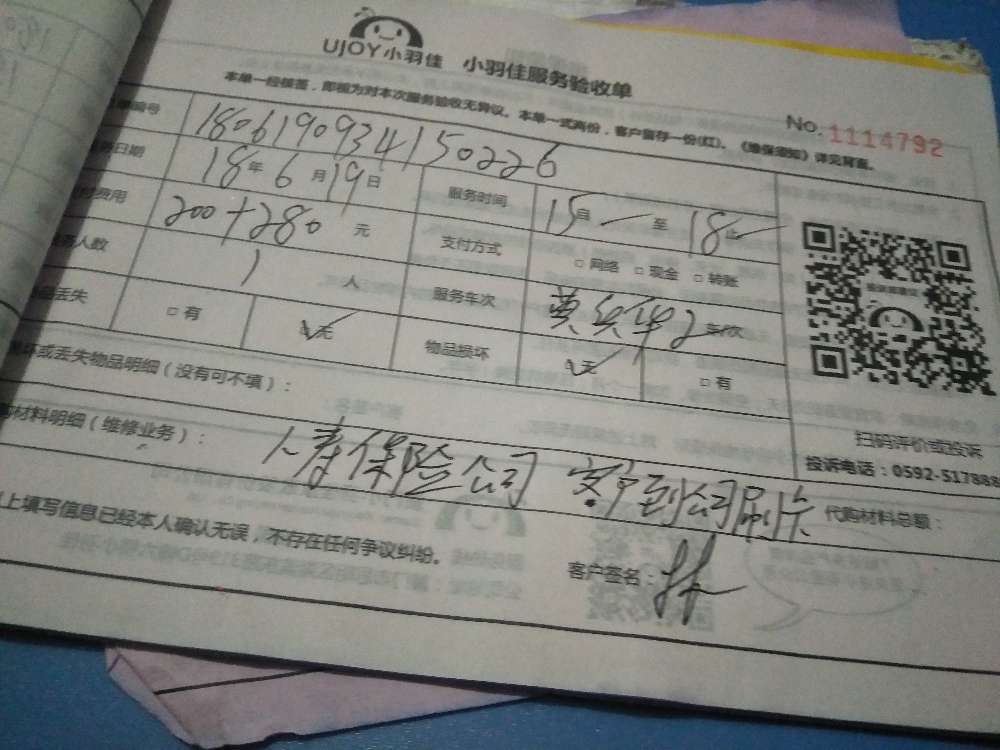 UJOY小羽佳 小羽佳服务验收单
本单一经核签，即视为对本次服务验收无异议。本单一式两份，客户留存一份(红)。《维保须知》详见背面。
No.1114792
编号 180619093415022​6
日期 18年6月19日 服务时间 15自 至 18止
费用 200+280 元 支付方式 □ 网络 □ 现金 □ 转账
人数 1 人 服务车次 2 车/次
丢失 □ 有 无 物品损坏 无 □ 有
坏或丢失物品明细（没有可不填）：
材料明细（维修业务）： 人寿保险公司 客户到公司刷卡
代购材料总额：
上填写信息已经本人确认无误，不存在任何争议纠纷。
客户签名：
扫码评价或投诉
投诉电话：0592-517888